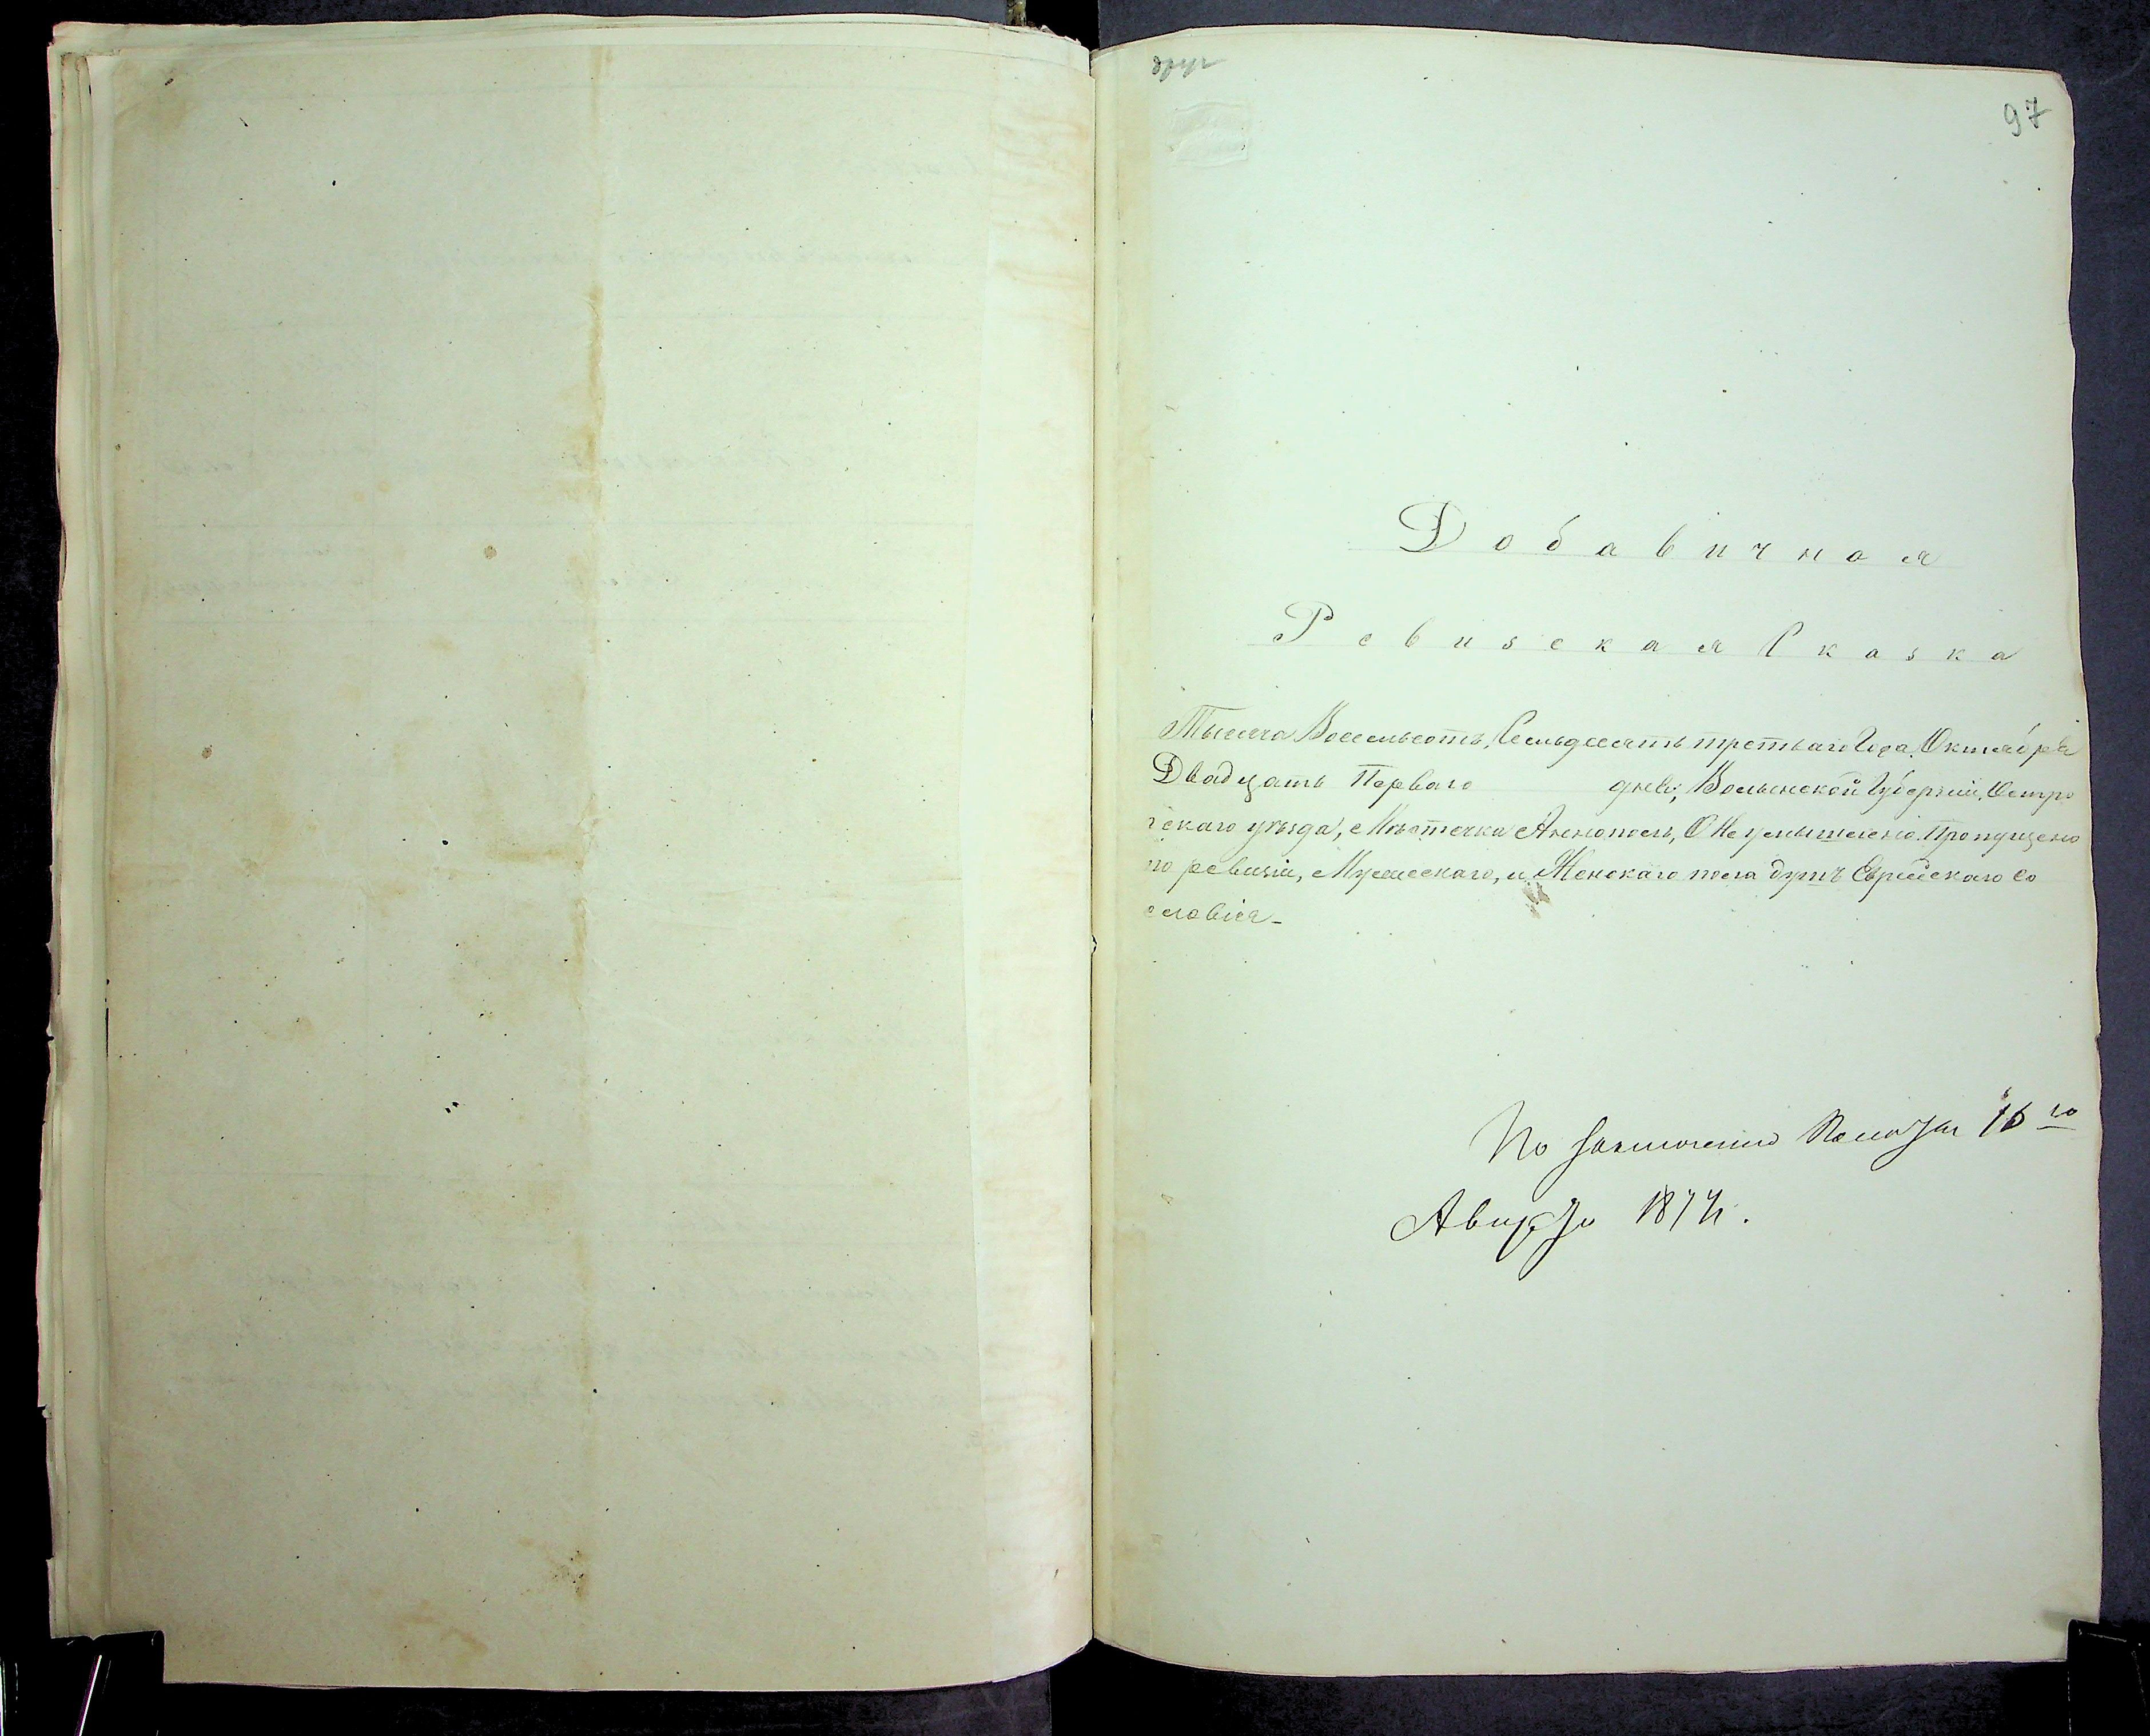 друг
97
Добавичная
Ревизская Сказка
Тысяча Восемьсотъ, Семьдесятъ третьаго Года, Октября
Двадцать Перваго дня, Волынской Губерніи, Остро
гскаго уѣзда, Мѣстечка Аннополь, О Не умышлено Пропущено
по ревизіи, Мужескаго, и Женскаго пола душъ Еврейскаго Со
словія_
По заключенію Палаты 16го
Августа 1874.